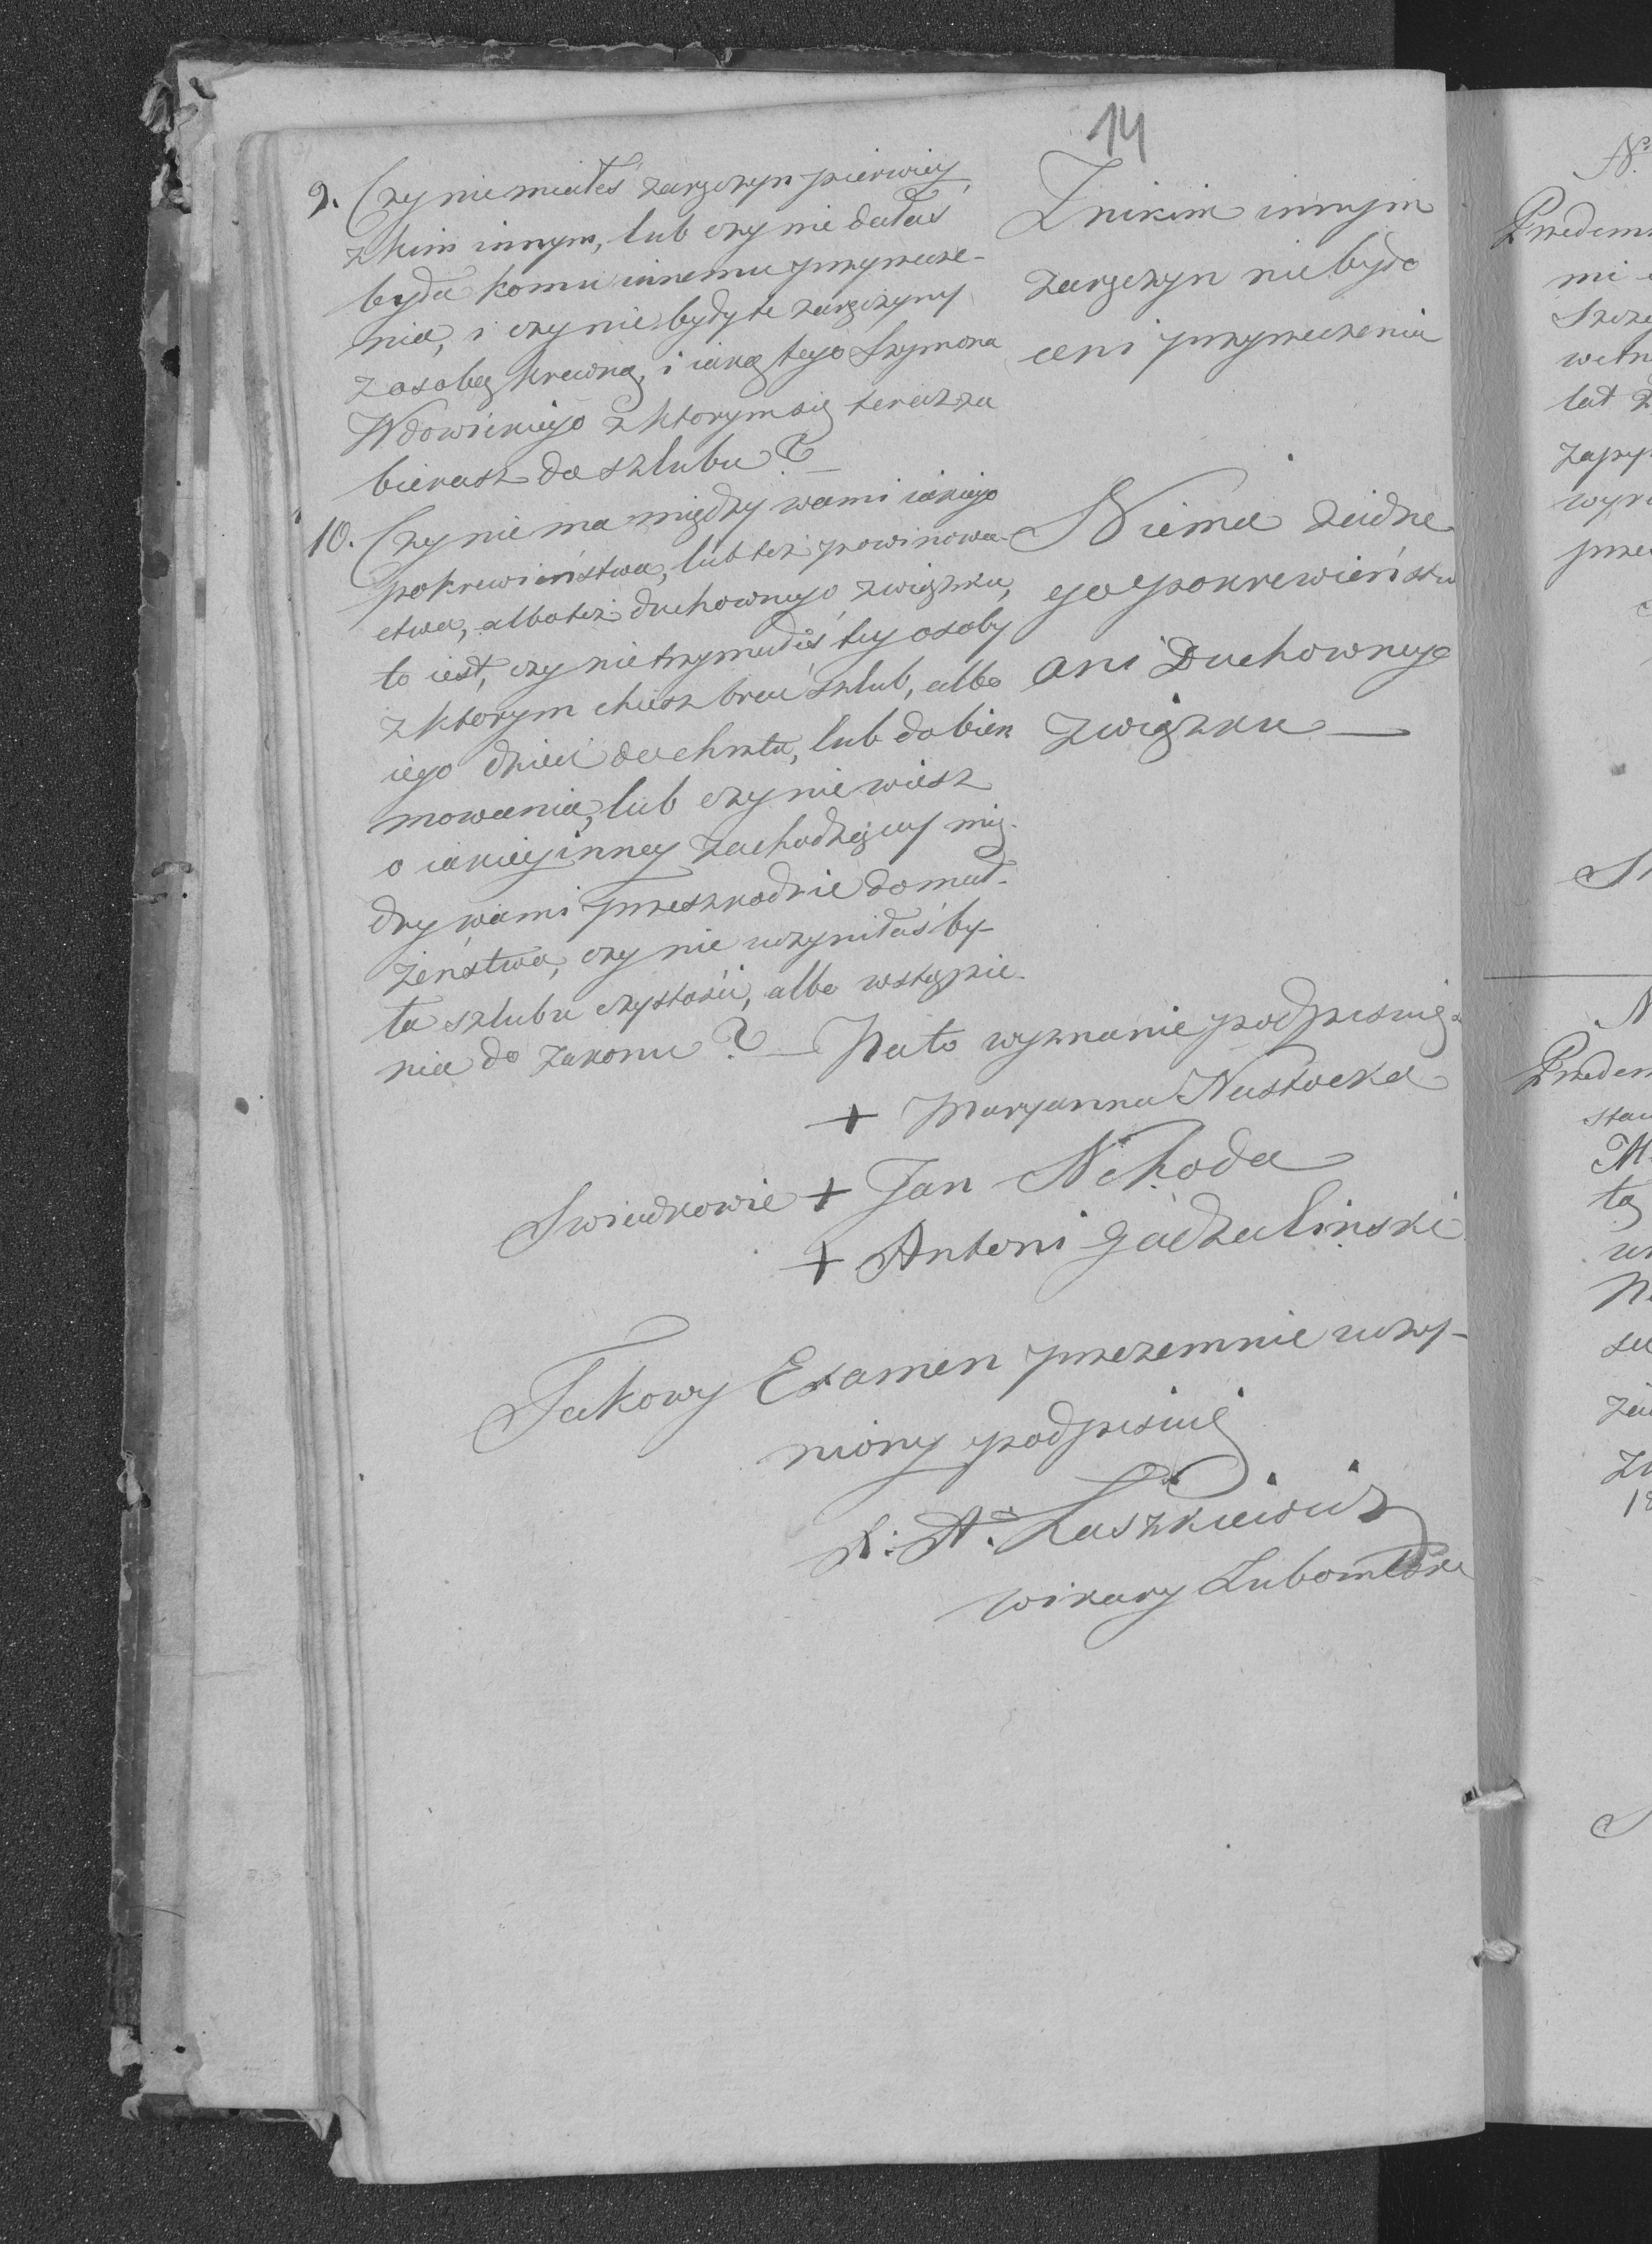 14
9. Czy nie miałeś zaręczyn pierwiey
z kim innym, lub czy nie dałaś
byda komu innemu przyrzecze-
nia, i czy nie były te zaręczyny
z osobą krewną, i iaką tego Szymona
Wdowickiego z ktorym się teraz za
bierasz do szlubu?
Z nikim innym
zaręczyn nie było
ani przyrzeczenia
10. Czy nie ma między wami iakiego
pokrewieństwa, lub też powinowa-
ctwa, albo też duchownego związku,
to iest, czy nie trzymałeś tey osoby
z ktorym chcesz brać szlub, albo
iego dzieci do chrztu, lub do bierz
mowania, lub czy nie wiesz
o iakiey inney zachodzącey mię-
dzy wami przeszkodzie do mał-
żeństwa, czy nie uczyniłaś by-
ła szlubu czystości, albo wstąpie-
nia do zakonu?
Niema żadne
go pokrewieństw
ani Duchownego
związku
Na to wyznanie podpisuię
+ Maryanna Nastocka
Swiadkowie + Jan Nehoda
+ Antoni Gadzaliński
Takowy Examen przezemnie uczy-
niony podpisuię
X. A. Laszkiewicz
wikary Luboml
N.
Przedem
mi
zapy
N
Przedem